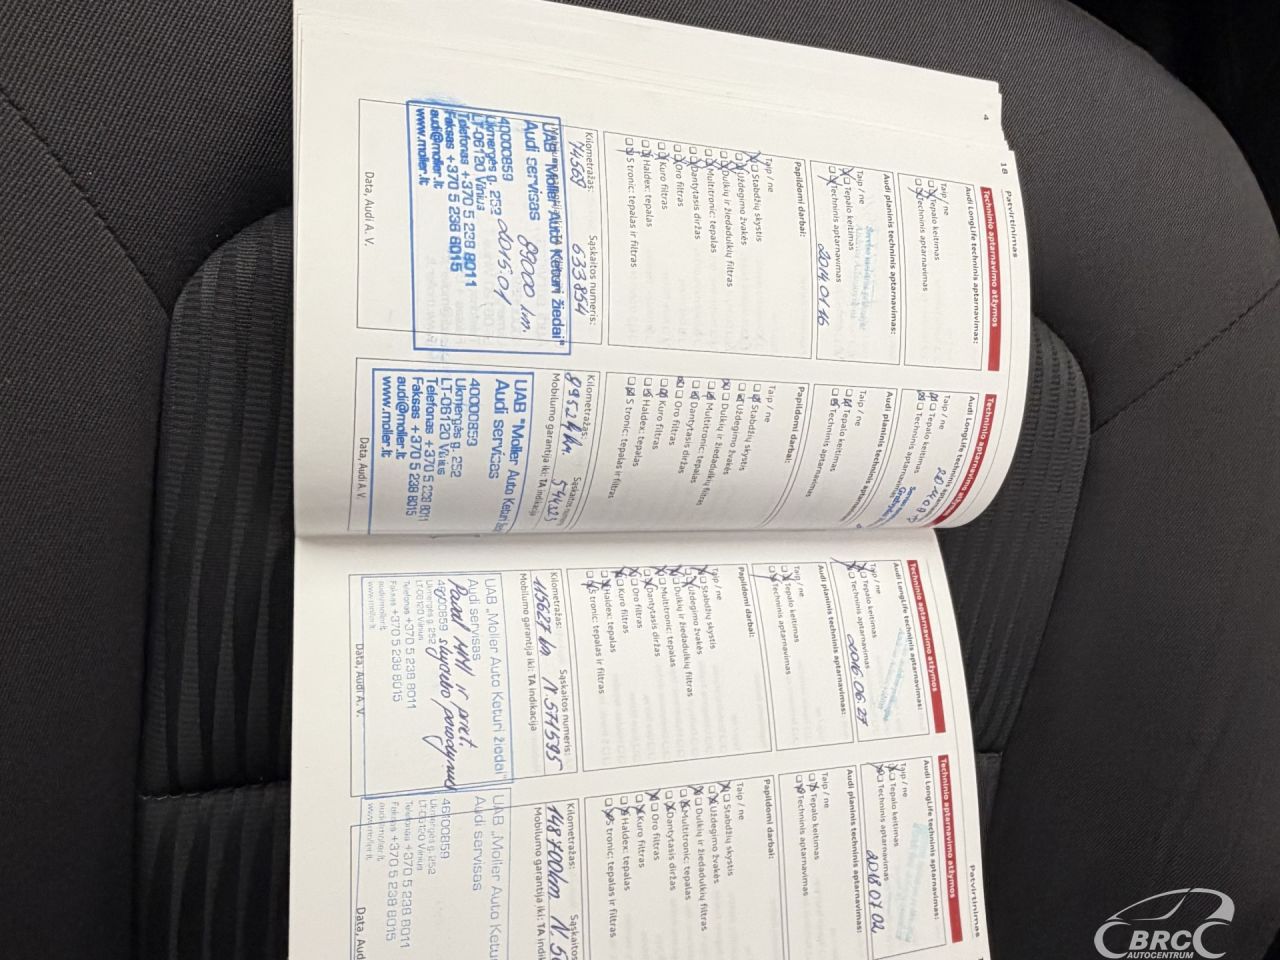 4
18
Patvirtinimas
Techninio aptarnavimo atžymos
Audi LongLife techninis aptarnavimas:
Taip / ne
Tepalo keitimas
Techninis aptarnavimas
Audi planinis techninis aptarnavimas:
Taip / ne
Tepalo keitimas
Techninis aptarnavimas
2014 01 16
Papildomi darbai:
Taip / ne
Stabdžių skystis
Uždegimo žvakės
Dulkių ir žiedadulkių filtras
Multitronic: tepalas
Dantytasis diržas
Oro filtras
Kuro filtras
Haldex: tepalas
S tronic: tepalas ir filtras
Kilometražas:
Sąskaitos numeris:
74569
633854
UAB "Moller Auto Keturi žiedai"
Audi servisas
89000 km.
40000859
2015.01
Ukmergės g. 252
LT-06120 Vilnius
Telefonas +370 5 238 8011
Faksas +370 5 238 8015
audi@moller.lt
www.moller.lt
Data, Audi A. V.
Techninio aptarnavimo atžymos
Audi LongLife techninis aptarnavimas
Taip / ne
Tepalo keitimas
Techninis aptarnavimas
Audi planinis techninis aptarnavimas
Taip / ne
Tepalo keitimas
Techninis aptarnavimas
Papildomi darbai:
Taip / ne
Stabdžių skystis
Uždegimo žvakės
Dulkių ir žiedadulkių filtras
Multitronic: tepalas
Dantytasis diržas
Oro filtras
Kuro filtras
Haldex: tepalas
S tronic: tepalas ir filtras
Kilometražas:
Sąskaitos
89524 km.
544323
Mobilumo garantija iki: TA indikacija
UAB "Moller Auto Keturi
Audi servisas
40000859
Ukmergės g. 252
LT-06120 Vilnius
Telefonas +370 5 238 8011
Faksas +370 5 238 8015
audi@moller.lt
www.moller.lt
Data, Audi A. V.
Techninio aptarnavimo atžymos
Audi LongLife techninis aptarnavimas:
Taip / ne
Tepalo keitimas
Techninis aptarnavimas
2016.06.27
Audi planinis techninis aptarnavimas:
Taip / ne
Tepalo keitimas
Techninis aptarnavimas
Papildomi darbai:
Taip / ne
Stabdžių skystis
Uždegimo žvakės
Dulkių ir žiedadulkių filtras
Multitronic: tepalas
Dantytasis diržas
Oro filtras
Kuro filtras
Haldex: tepalas
S tronic: tepalas ir filtras
Kilometražas:
Sąskaitos numeris:
115627 km
N. 571595
Mobilumo garantija iki: TA indikacija
UAB „Moller Auto Keturi žiedai"
Audi servisas
Ukmergės g. 252
LT-06120 Vilnius
Telefonas +370 5 238 8011
Faksas +370 5 238 8015
audi@moller.lt
www.moller.lt
Data, Audi A. V.
Patvirtinimas
Techninio aptarnavimo atžymos
Audi LongLife techninis aptarnavimas:
Taip / ne
Tepalo keitimas
Techninis aptarnavimas
2018 07 02
Audi planinis techninis aptarnavimas:
Taip / ne
Tepalo keitimas
Techninis aptarnavimas
Papildomi darbai:
Taip / ne
Stabdžių skystis
Uždegimo žvakės
Dulkių ir žiedadulkių filtras
Multitronic: tepalas
Dantytasis diržas
Oro filtras
Kuro filtras
Haldex: tepalas
S tronic: tepalas ir filtras
Kilometražas:
148700 km
Mobilumo garantija iki: TA
UAB „Moller Auto Ketu
Audi servisas
Ukmergės g. 252
LT-06120 Vilnius
Telefonas +370 5 238 8011
Faksas +370 5 238 8015
audi@moller.lt
www.moller.lt
Data, Aud
BRC
AUTOCENTRUM